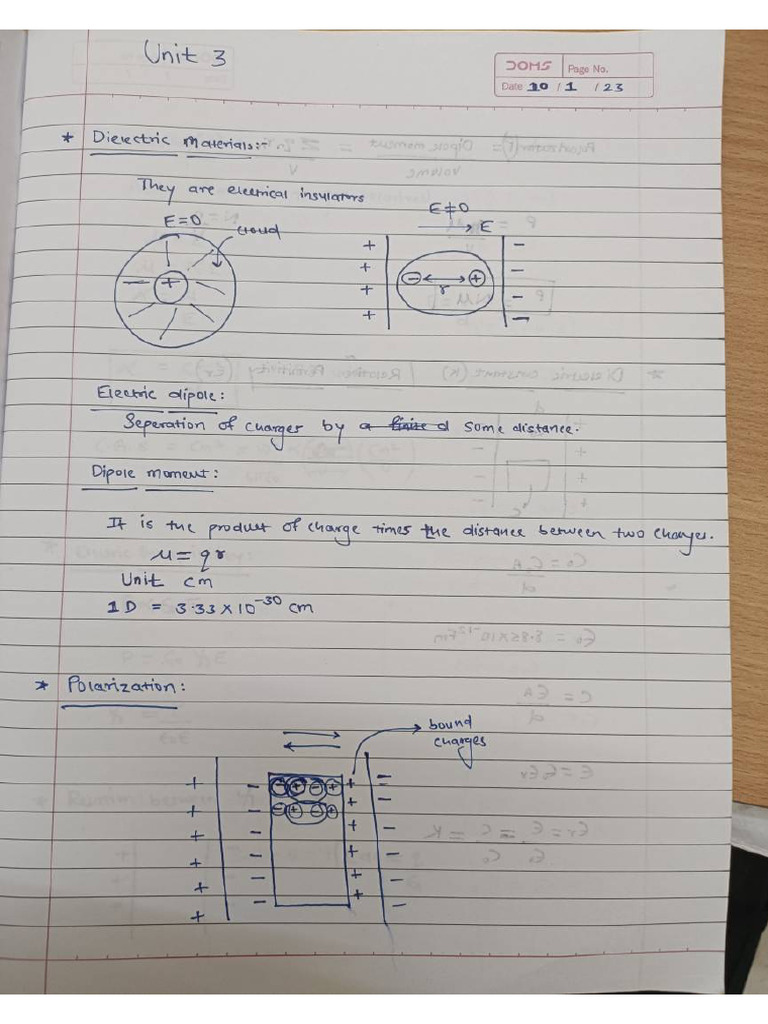 Unit 3
DOMS Page No.
Date 10 / 1 / 23
* Dielectric Materials:-
They are electrical insulators
E=0
cloud
E≠0
E
+
+ -
+ -
+ -
+ -
- +
r
Electric dipole:
Seperation of charges by a finite d some distance.
Dipole moment:
It is the product of charge times the distance between two charges.
μ = qr
Unit cm
1D = 3.33×10⁻³⁰ cm
* Polarization:
bound
charges
+ - - + - + + -
+ - - + - + + -
+ - + -
+ - + -
+ - + -
+ - + -